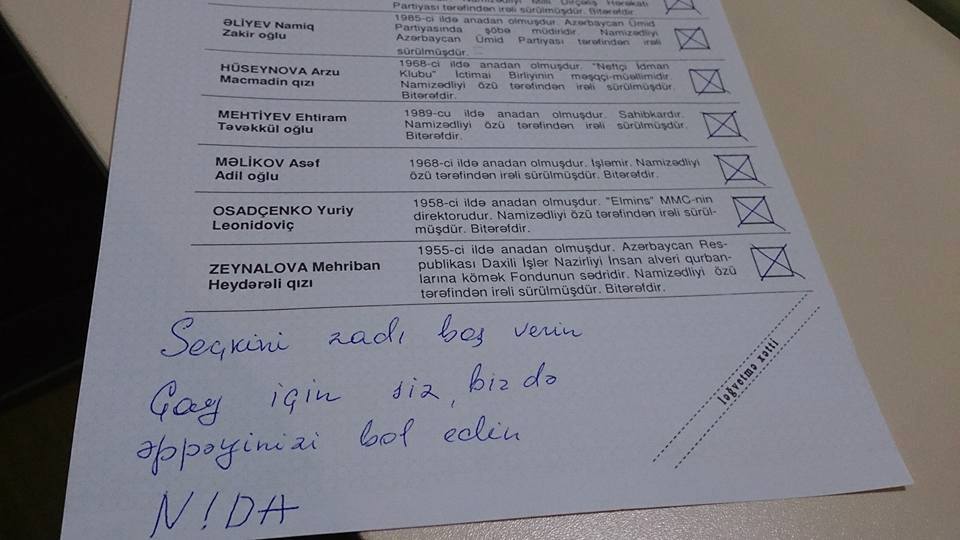 Partiyası tərəfindən irəli sürülmüşdür. Bitərəfdir.
ƏLİYEV Namiq
Zakir oğlu
1985-ci ildə anadan olmuşdur. Azərbaycan Ümid
Partiyasında şöbə müdiridir. Namizədliyi
Azərbaycan Ümid Partiyası tərəfindən irəli
sürülmüşdür.
HÜSEYNOVA Arzu
Macmadin qızı
1968-ci ildə anadan olmuşdur. "Neftçi İdman
Klubu" İctimai Birliyinin məşqçi-müəllimidir.
Namizədliyi özü tərəfindən irəli sürülmüşdür.
Bitərəfdir.
MEHTİYEV Ehtiram
Təvəkkül oğlu
1989-cu ildə anadan olmuşdur. Sahibkardır.
Namizədliyi özü tərəfindən irəli sürülmüşdür.
Bitərəfdir.
MƏLİKOV Asəf
Adil oğlu
1968-ci ildə anadan olmuşdur. İşləmir. Namizədliyi
özü tərəfindən irəli sürülmüşdür. Bitərəfdir.
OSADÇENKO Yuriy
Leonidoviç
1958-ci ildə anadan olmuşdur. "Elmins" MMC-nin
direktorudur. Namizədliyi özü tərəfindən irəli sürül-
müşdür. Bitərəfdir.
ZEYNALOVA Mehriban
Heydərəli qızı
1955-ci ildə anadan olmuşdur. Azərbaycan Res-
publikası Daxili İşlər Nazirliyi İnsan alveri qurban-
larına kömək Fondunun sədridir. Namizədliyi özü
tərəfindən irəli sürülmüşdür. Bitərəfdir.
Seçkini zadı boş verin
Çay için siz, biz də
əppəyinizi bol edin
N!DA
ləğvetmə xətti